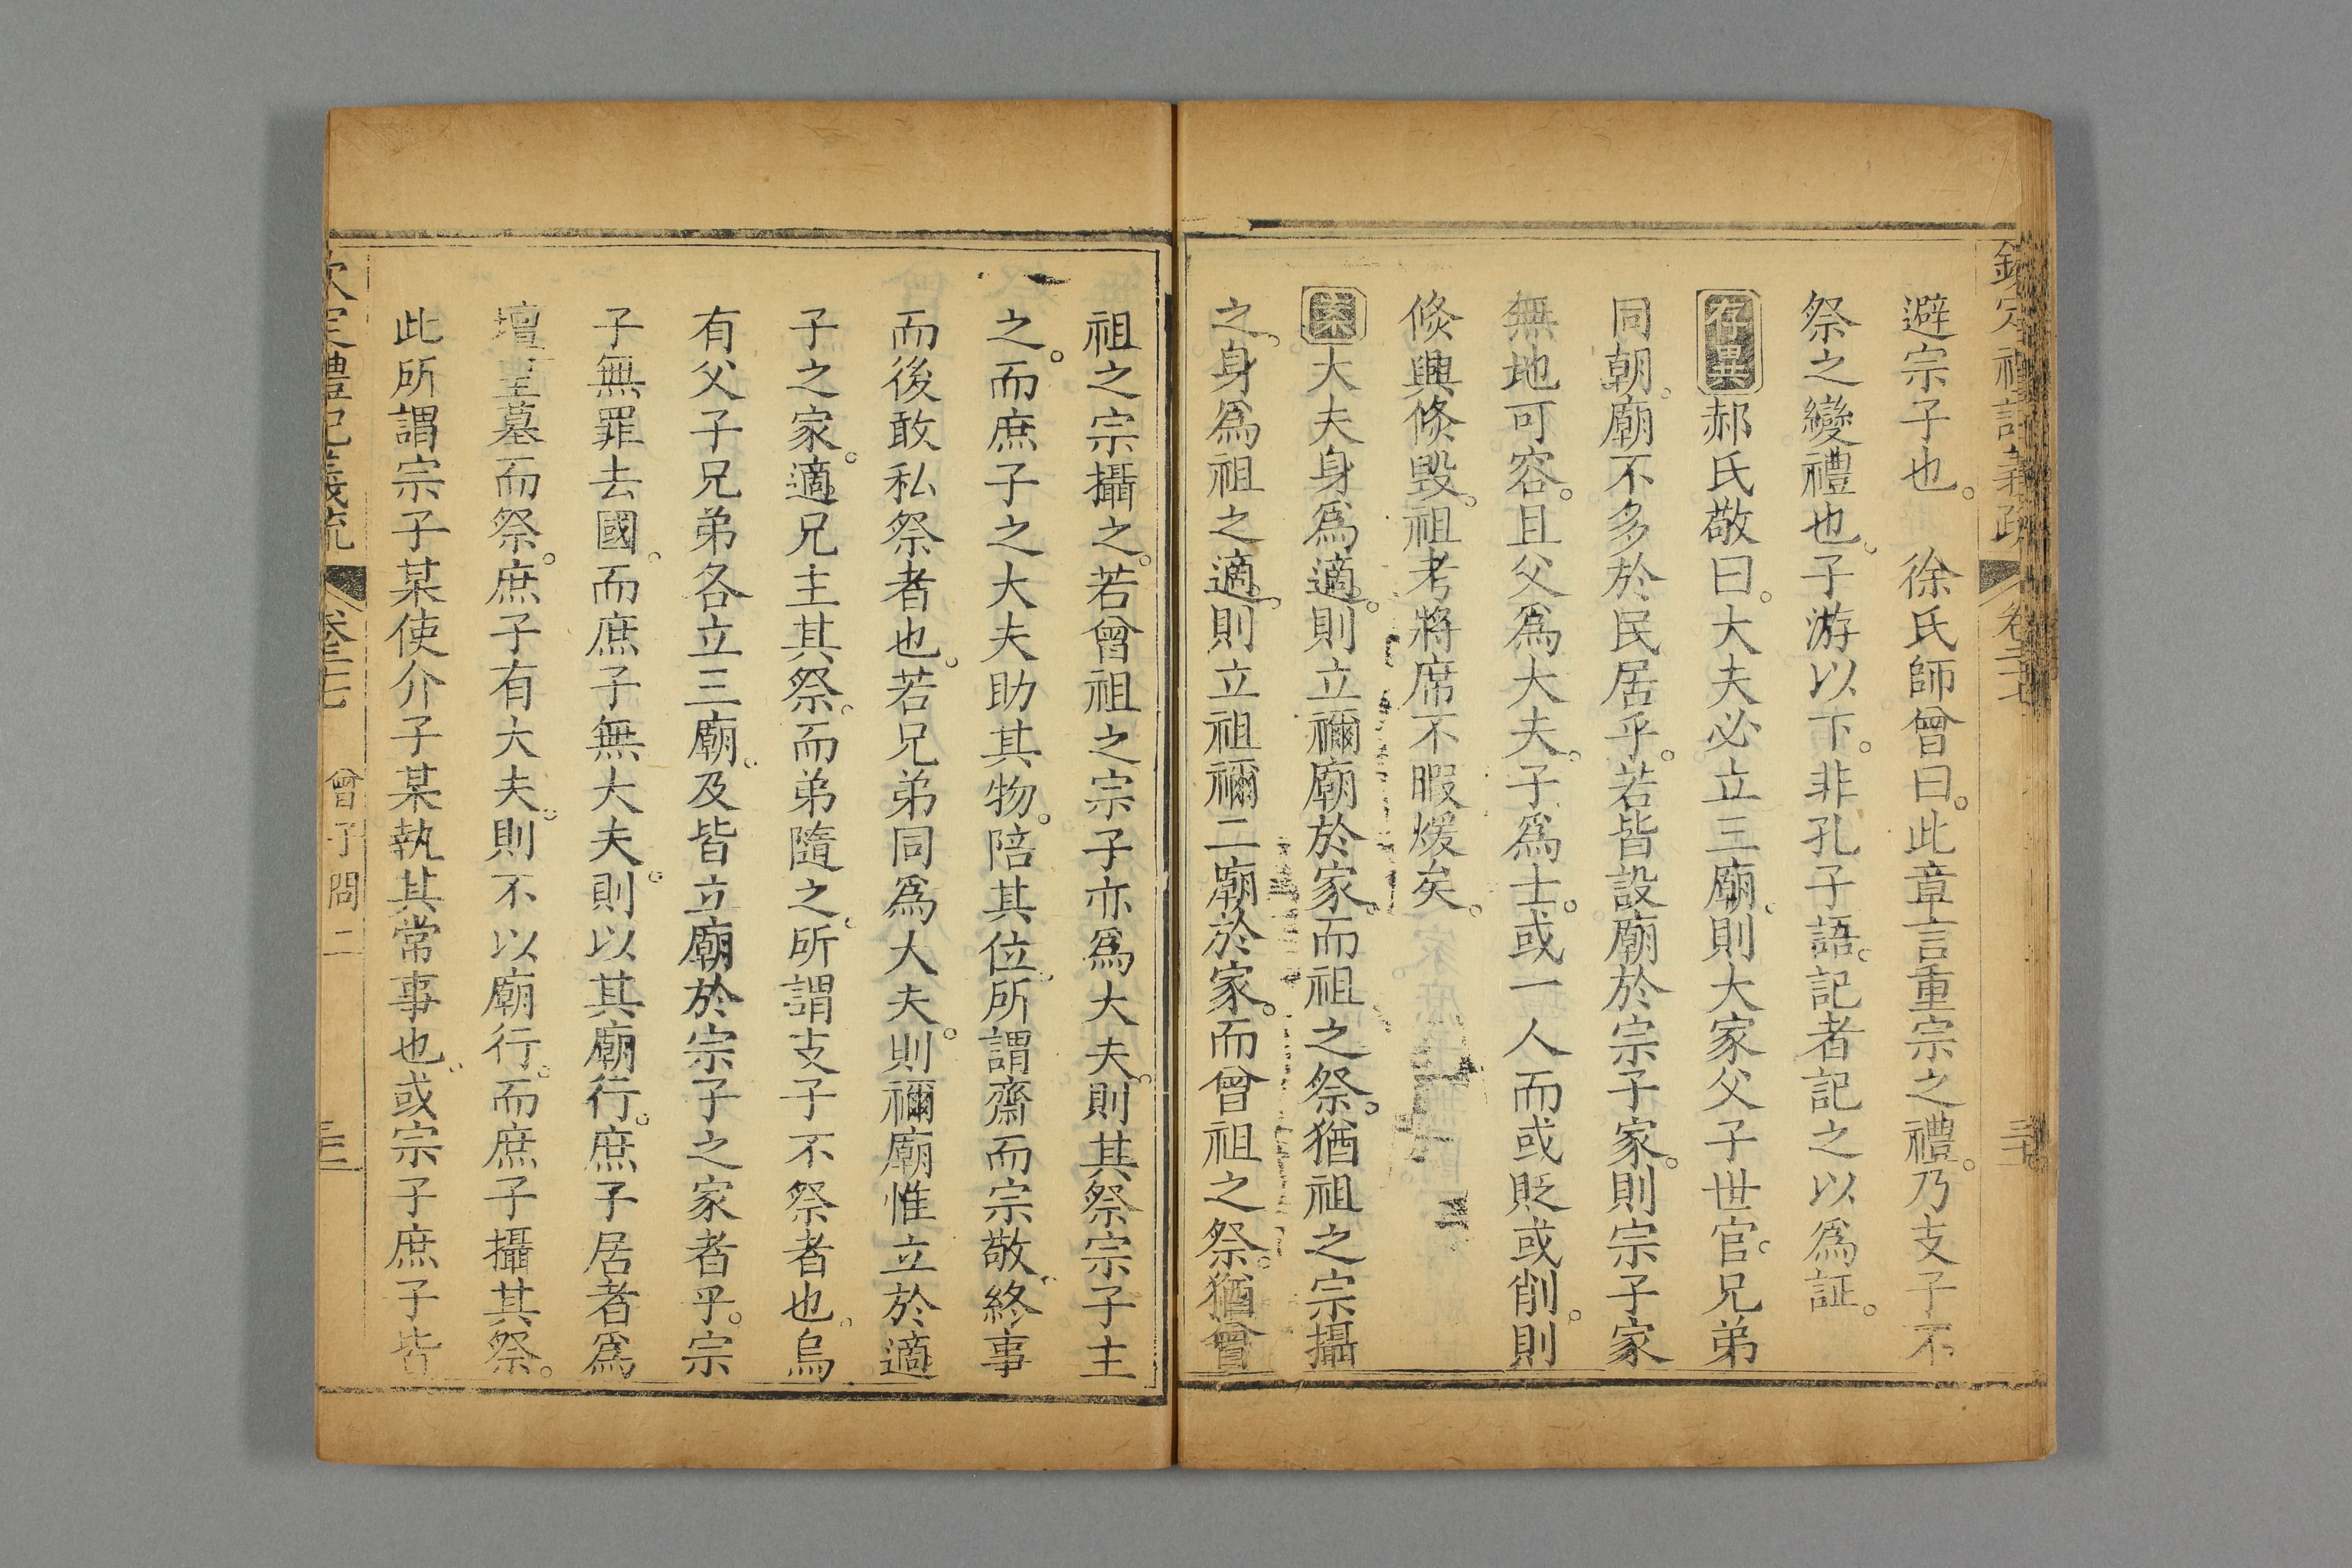 欽定禮記義疏 卷二十七
避宗子也。 徐氏師曾曰。此章言重宗之禮。乃支子不
祭之變禮也。子游以下。非孔子語。記者記之以爲証。
存異郝氏敬曰。大夫必立三廟。則大家父子世官。兄弟
同朝。廟不多於民居乎。若皆設廟於宗子家。則宗子家
無地可容。且父爲大夫。子爲士。或一人而或貶或削。則
倐興倐毀。祖考將席不暇煖矣。
案大夫身爲適。則立禰廟於家。而祖之祭。猶祖之宗攝
之。身爲祖之適。則立祖禰二廟於家。而曾祖之祭。猶曾
祖之宗攝之。若曾祖之宗子亦爲大夫。則其祭宗子主
之。而庶子之大夫助其物。陪其位。所謂齋而宗敬。終事
而後敢私祭者也。若兄弟同爲大夫。則禰廟惟立於適
子之家。適兄主其祭。而弟隨之。所謂支子不祭者也。烏
有父子兄弟各立三廟。及皆立廟於宗子之家者乎。宗
子無罪去國。而庶子無大夫。則以其廟行。庶子居者爲
壇望墓而祭。庶子有大夫。則不以廟行。而庶子攝其祭。
此所謂宗子某使介子某執其常事也。或宗子庶子皆
欽定禮記義疏 卷二十七 曾子問二 三十二